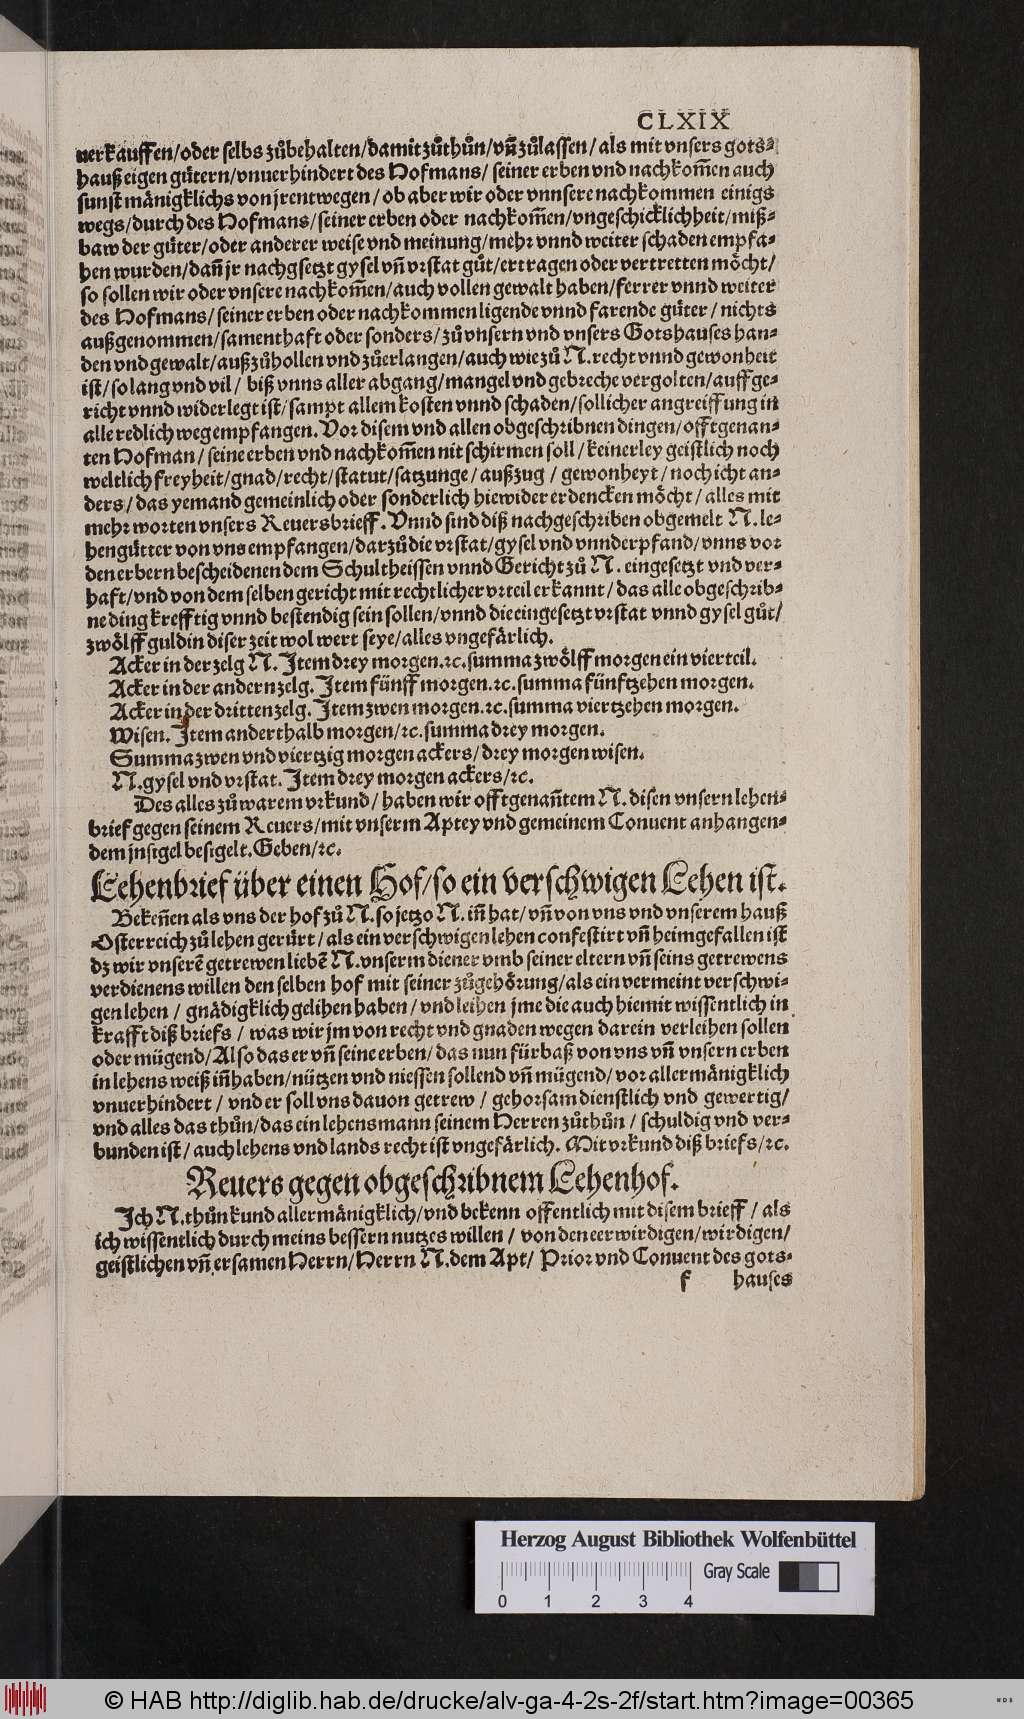 CLXIX
uerkauffen/oder selbs zůbehalten/damit zůthůn/vñ zůlassen/als mit vnsers gots-
hauß eigen gütern/vnuerhindert des Hofmans/ seiner erben vnd nachkom̃en auch
sunst mänigklichs von jrentwegen/ ob aber wir oder vnnsere nachkommen einigs
wegs/durch des Hofmans/seiner erben oder nachkom̃en/vngeschicklichheit/miß-
baw der güter/oder anderer weise vnd meinung/mehr vnnd weiter schaden empfa-
hen wurden/dañ jr nachgsetzt gysel vñ vrstat gůt/ertragen oder vertretten möcht/
so sollen wir oder vnsere nachkom̃en/auch vollen gewalt haben/ferrer vnnd weiter
des Hofmans/seiner erben oder nachkommen ligende vnnd farende güter/ nichts
außgenommen/samenthafft oder sonders/zů vnsern vnd vnsers Gotshauses han-
den vnd gewalt/außzůhollen vnd zůerlangen/auch wie zů N. recht vnnd gewonheit
ist/so lang vnd vil/ biß vnns aller abgang/mangel vnd gebreche vergolten/auffge-
richt vnnd widerlegt ist/sampt allem kosten vnnd schaden/sollicher angreiffung in
alle redlich weg empfangen. Vor disem vnd allen obgeschribnen dingen/offtgenan-
ten Hofman/ seine erben vnd nachkom̃en nit schirmen soll/keinerley geistlich noch
weltlich freyheit/gnad/recht/statut/satzunge/außzug / gewonheyt/noch icht an-
ders/das yemand gemeinlich oder sonderlich hiewider erdencken möcht/alles mit
mehr worten vnsers Reuersbrieff. Vnnd sind diß nachgeschriben obgemelt N. le-
hengütter von vns empfangen/darzů die vrstat/gysel vnd vnnderpfand/vnns vor
den erbern bescheidenen dem Schultheissen vnnd Gericht zů N. eingesetzt vnd ver-
hafft/vnd von dem selben gericht mit rechtlicher vrteil erkannt/das alle obgeschrib-
ne ding krefftig vnnd bestendig sein sollen/vnnd die eingesetzt vrstat vnnd gysel gůt/
zwölff guldin diser zeit wol wert seye/alles vngefärlich.
Acker in der zelg N. Item drey morgen.ꝛc.summa zwölff morgen ein vierteil.
Acker in der andern zelg. Item fünff morgen.ꝛc.summa fünftzehen morgen.
Acker in der dritten zelg. Item zwen morgen.ꝛc.summa viertzehen morgen.
Wisen. Item anderthalb morgen/ꝛc.summa drey morgen.
Summa zwen vnd viertzig morgen ackers/drey morgen wisen.
N. gysel vnd vrstat. Item drey morgen ackers/ꝛc.
Des alles zů warem vrkund/ haben wir offtgenañtem N. disen vnsern lehen-
brief gegen seinem Reuers/mit vnserm Aptey vnd gemeinem Conuent anhangen-
dem jnsigel besigelt. Geben/ꝛc.
Lehenbrief über einen Hof/so ein verschwigen Lehen ist.
Bekeñen als vns der hof zů N. so jetzo N. iñ hat/ vñ von vns vnd vnserem hauß
Osterreich zů lehen gerürt/als ein verschwigen lehen confestirt vñ heimgefallen ist
dz wir vnserẽ getrewen liebẽ N. vnserm diener vmb seiner eltern vñ seins getrewens
verdienens willen den selben hof mit seiner zůgehörung/als ein vermeint verschwi-
gen lehen / gnädigklich gelihen haben / vnd leihen jme die auch hiemit wissentlich in
krafft diß briefs / was wir jm von recht vnd gnaden wegen darein verleihen sollen
oder mügend/Also das er vñ seine erben/das nun fürbaß von vns vñ vnsern erben
in lehens weiß iñhaben/nützen vnd niessen sollend vñ mügend/vor allermänigklich
vnuerhindert / vnd er soll vns dauon getrew / gehorsam dienstlich vnd gewertig/
vnd alles das thůn/das ein lehensmann seinem Herren zůthůn / schuldig vnd ver-
bunden ist/auch lehens vnd lands recht ist vngefärlich. Mit vrkund diß briefs/ꝛc.
Reuers gegen obgeschribnem Lehenhof.
Ich N. thůn kund allermänigklich/vnd bekenn offentlich mit disem brieff / als
ich wissentlich durch meins bessern nutzes willen / von den eerwirdigen/wirdigen/
geistlichen vñ ersamen Herrn/Herrn N. dem Apt/ Prior vnd Conuent des gots-
f hauses
Herzog August Bibliothek Wolfenbüttel
Gray Scale
0 1 2 3 4
© HAB http://diglib.hab.de/drucke/alv-ga-4-2s-2f/start.htm?image=00365
WDB